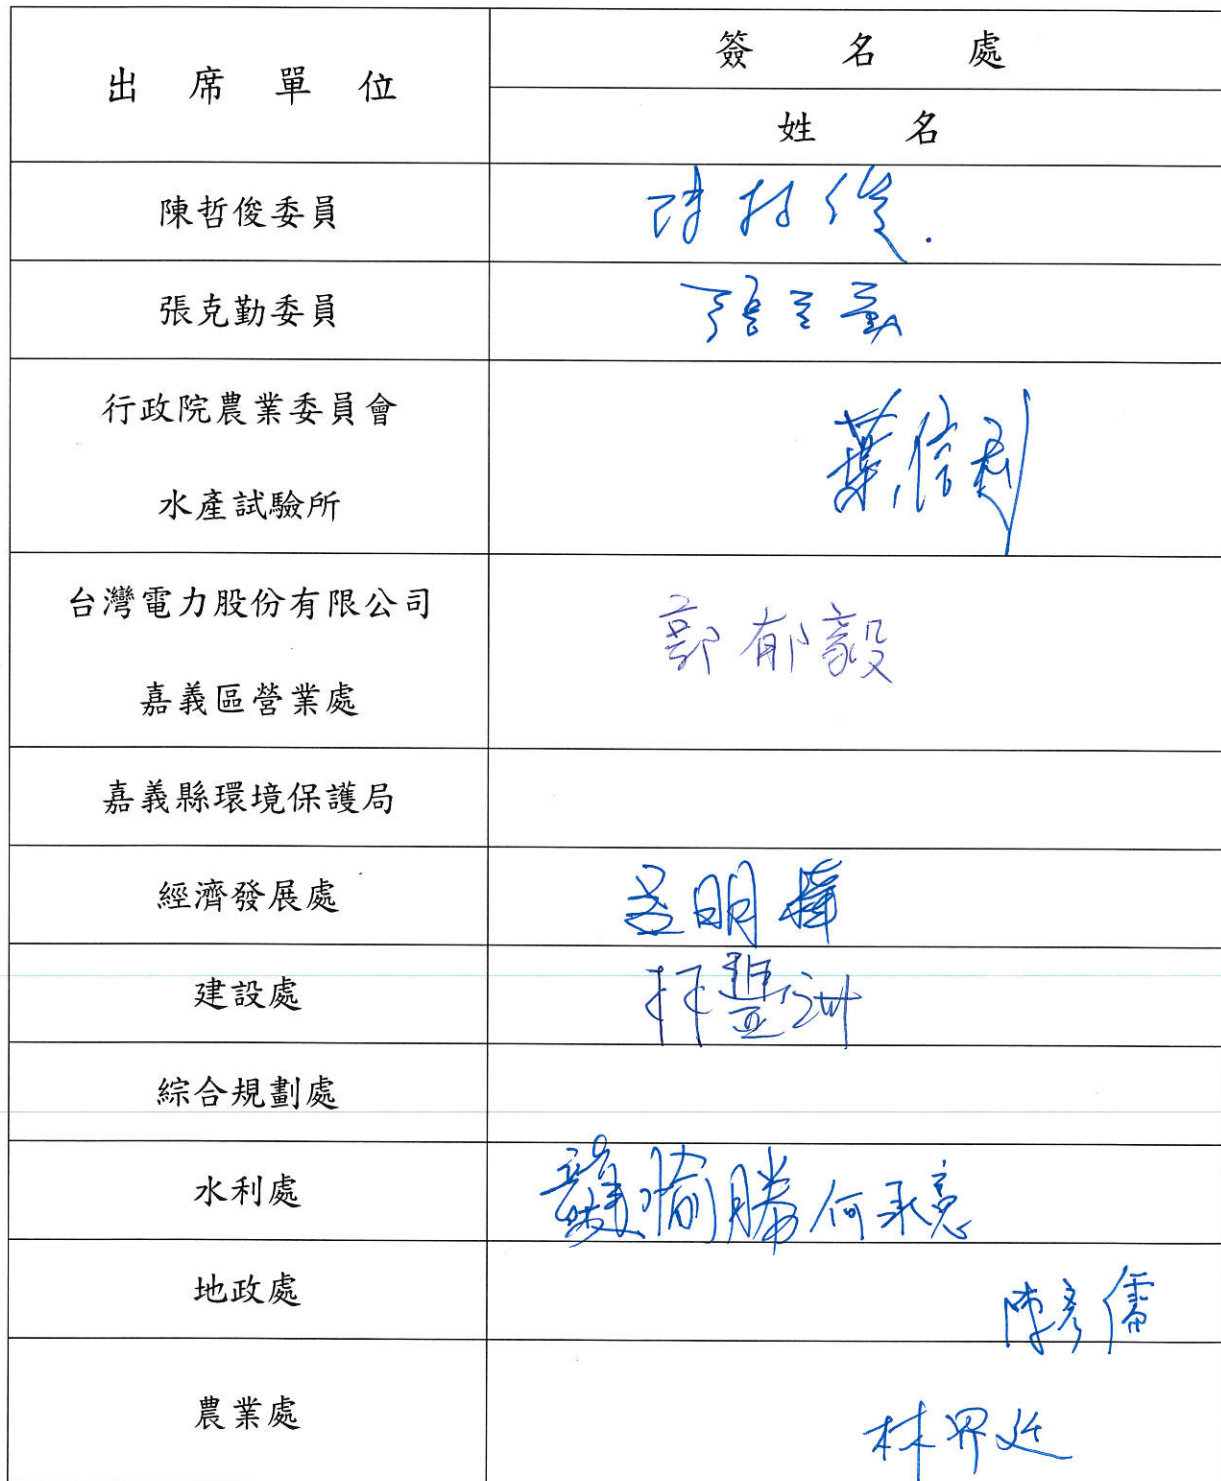 出席單位
簽名處
姓名
陳哲俊委員
陳哲俊.
張克勤委員
張克勤
行政院農業委員會
水產試驗所
葉信利
台灣電力股份有限公司
嘉義區營業處
郭郁毅
嘉義縣環境保護局
經濟發展處
呂明
建設處
林豐洲
綜合規劃處
水利處
勝 何承
地政處
陳彥儒
農業處
林